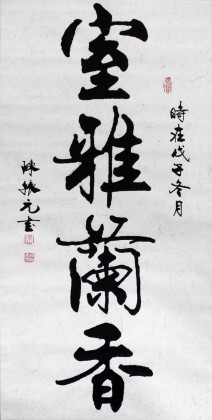 時在戊子冬月
室雅蘭香
陳振元書